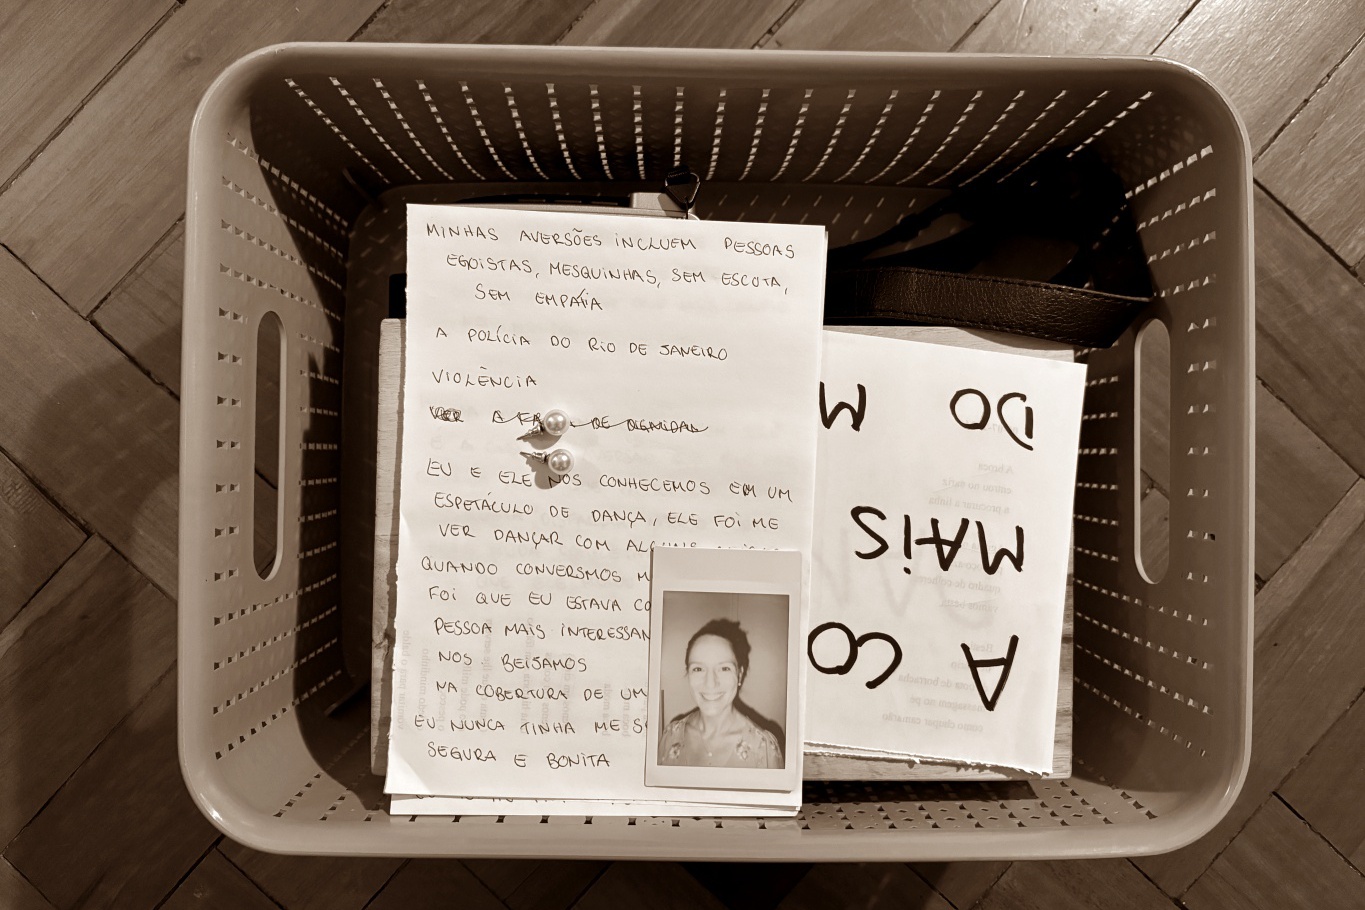 MINHAS AVERSÕES INCLUEM PESSOAS
EGOISTAS, MESQUINHAS, SEM ESCOTA,
SEM EMPATIA
A POLÍCIA DO RIO DE JANEIRO
VIOLÊNCIA
VER A DE
EU E ELE NOS CONHECEMOS EM UM
ESPETÁCULO DE DANÇA, ELE FOI ME
VER DANÇAR COM
QUANDO CONVERSMOS M
FOI QUE EU ESTAVA CO
PESSOA MAIS INTERESSAN
NOS BEIJAMOS
NA COBERTURA DE UM
EU NUNCA TINHA ME S
SEGURA E BONITA
A CO
MAIS
DO M